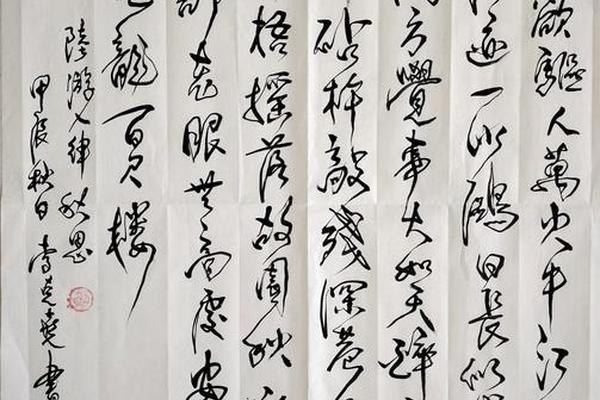 欲驅人萬火牛江
迹一沙鷗日長似
方覺事大如天醉
砧杵敲殘深巷
梧搖落故園秋
老眼無高處安
龍百尺樓
陸游七律秋思
甲辰秋日克堯書